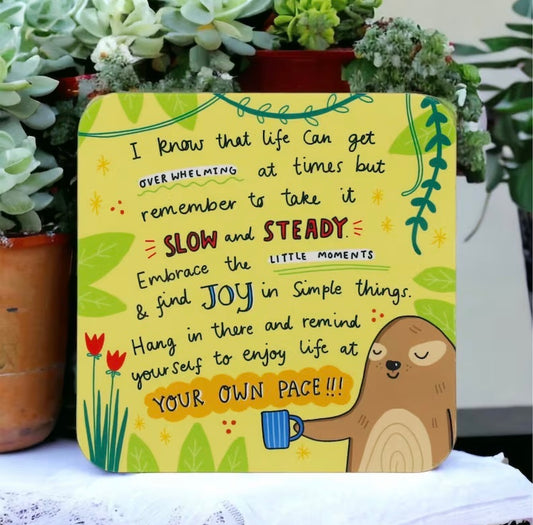 I know that life can get
OVERWHELMING at times but
remember to take it
SLOW and STEADY.
Embrace the LITTLE MOMENTS
& find JOY in simple things.
Hang in there and remind
yourself to enjoy life at
YOUR OWN PACE!!!